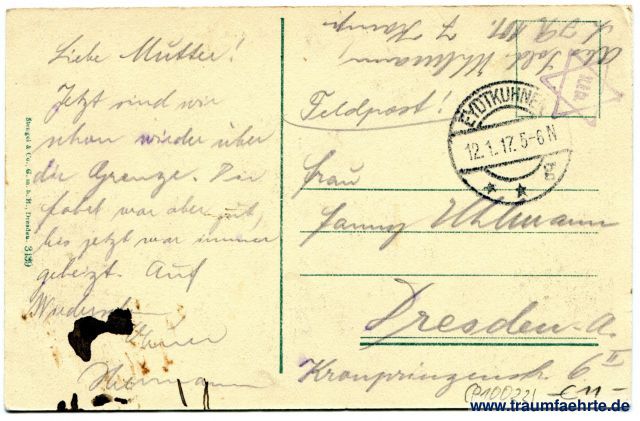 Liebe Mutter!
Jetzt sind wir
schon wieder über
die Grenze. Die
war aber gut,
bis jetzt war immer
geheizt. Auf
Hermann
Stengel & Co., G. m. b. H., Dresden.
Feldpost!
EYDTKUHNEN
12.1.17.5-6N
Frau
Fanny Uhlmann
Dresden-A.
Kronprinzenstr. 6 II
www.traumfaehrte.de